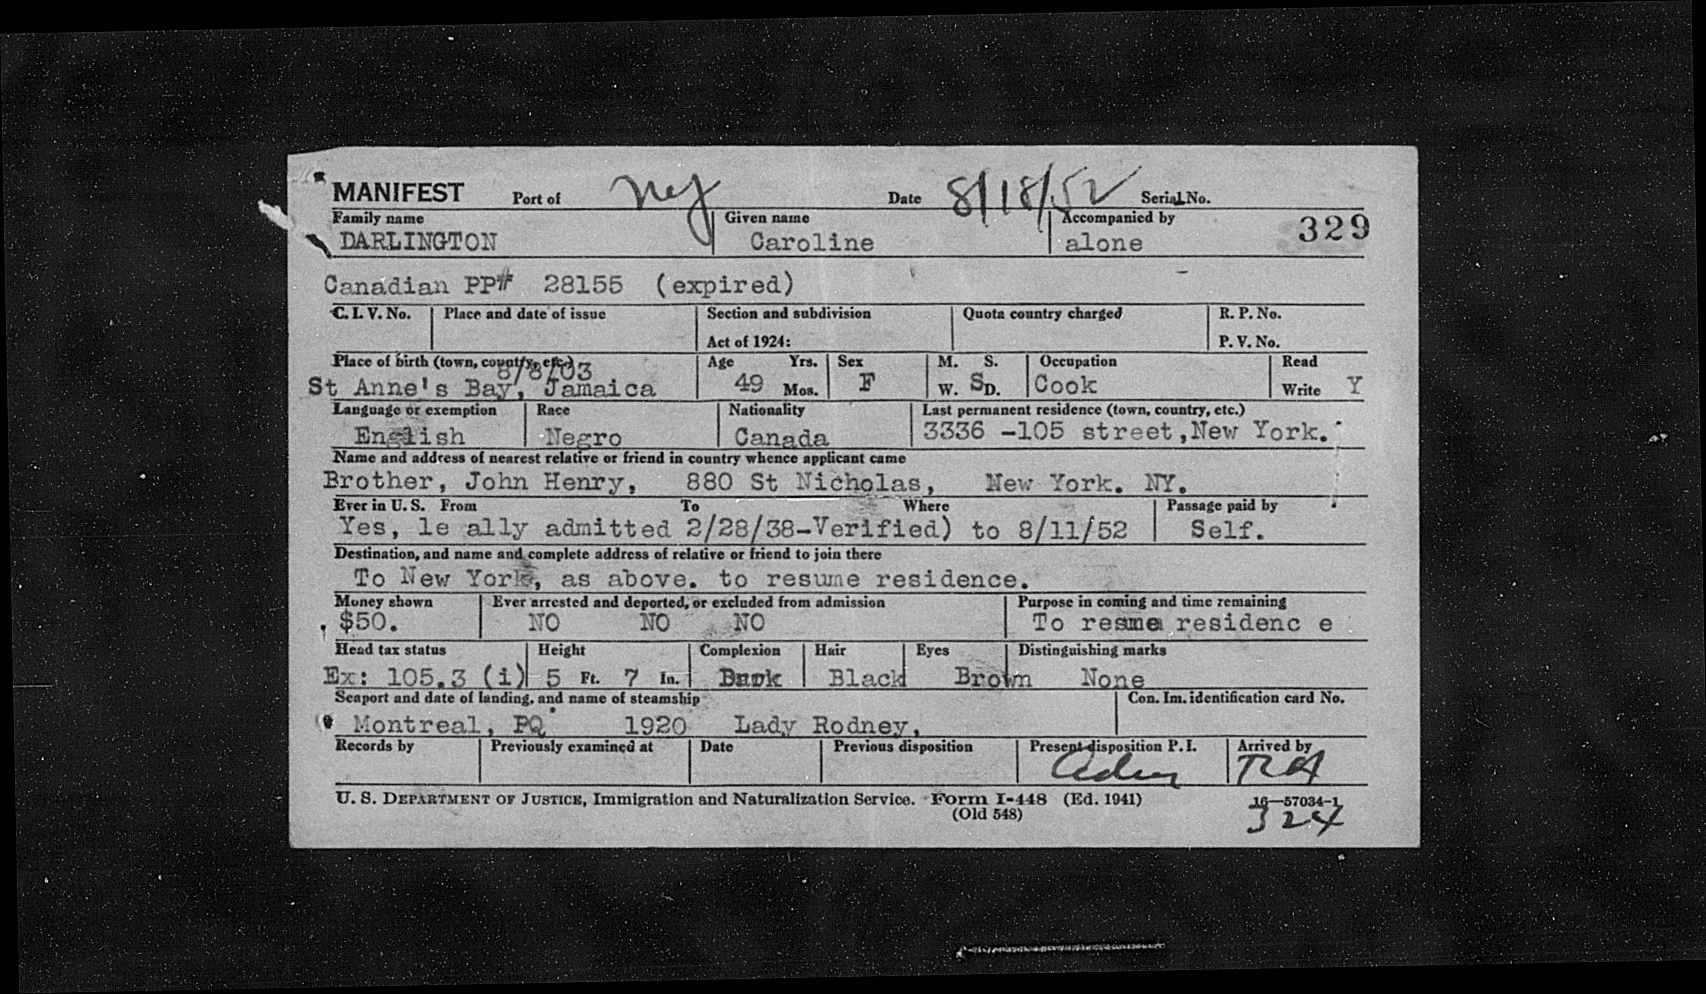 MANIFEST Port of Ny Date 8/18/52 Serial No.
Family name Given name Accompanied by 329
DARLINGTON Caroline alone
Canadian PP# 28155 (expired)
C. I. V. No. Place and date of issue Section and subdivision Quota country charged R. P. No.
Act of 1924: P. V. No.
Place of birth (town, country, etc.) Age Yrs. Sex M. S. Occupation Read
8/8/03
St Anne's Bay, Jamaica 49 Mos. F W. S D. Cook Write Y
Language or exemption Race Nationality Last permanent residence (town, country, etc.)
English Negro Canada 3336 -105 street,New York.
Name and address of nearest relative or friend in country whence applicant came
Brother, John Henry, 880 St Nicholas, New York. NY.
Ever in U. S. From To Where Passage paid by
Yes, le ally admitted 2/28/38-Verified) to 8/11/52 Self.
Destination, and name and complete address of relative or friend to join there
To New York, as above. to resume residence.
Money shown Ever arrested and deported, or excluded from admission Purpose in coming and time remaining
$50. NO NO NO To resme residenc e
Head tax status Height Complexion Hair Eyes Distinguishing marks
Ex: 105.3 (i) 5 Ft. 7 In. Black Brown None
Seaport and date of landing, and name of steamship Con. Im. identification card No.
Montreal, PQ 1920 Lady Rodney,
Records by Previously examined at Date Previous disposition Present disposition P. I. Arrived by
U. S. DEPARTMENT OF JUSTICE, Immigration and Naturalization Service. Form I-448 (Ed. 1941) 16—57034-1
(Old 548) 324